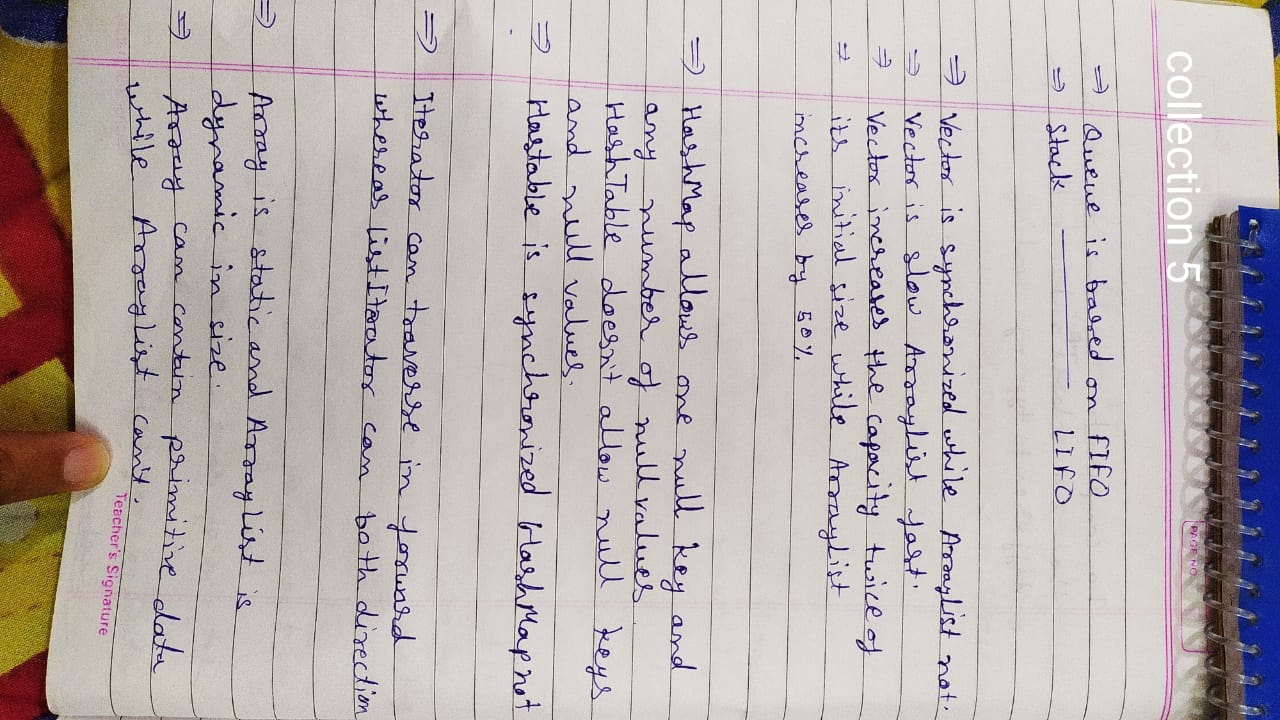 PAGE NO.
collection 5
⇒ Queue is based on FIFO
⇒ Stack ———— LIFO
⇒ Vector is synchronized while ArrayList not.
⇒ Vector is slow ArrayList fast.
⇒ Vector increases the capacity twice of
⇒ its initial size while ArrayList
increases by 50%.
⇒ HashMap allows one null key and
any number of null values.
HashTable doesn't allow null keys
and null values.
⇒ Hastable is synchronized HashMap not
⇒ Iterator can traverse in forward
whereas ListIterator can both direction
⇒ Array is static and ArrayList is
dynamic in size.
⇒ Array can contain primitive data
while ArrayList can't.
Teacher's Signature